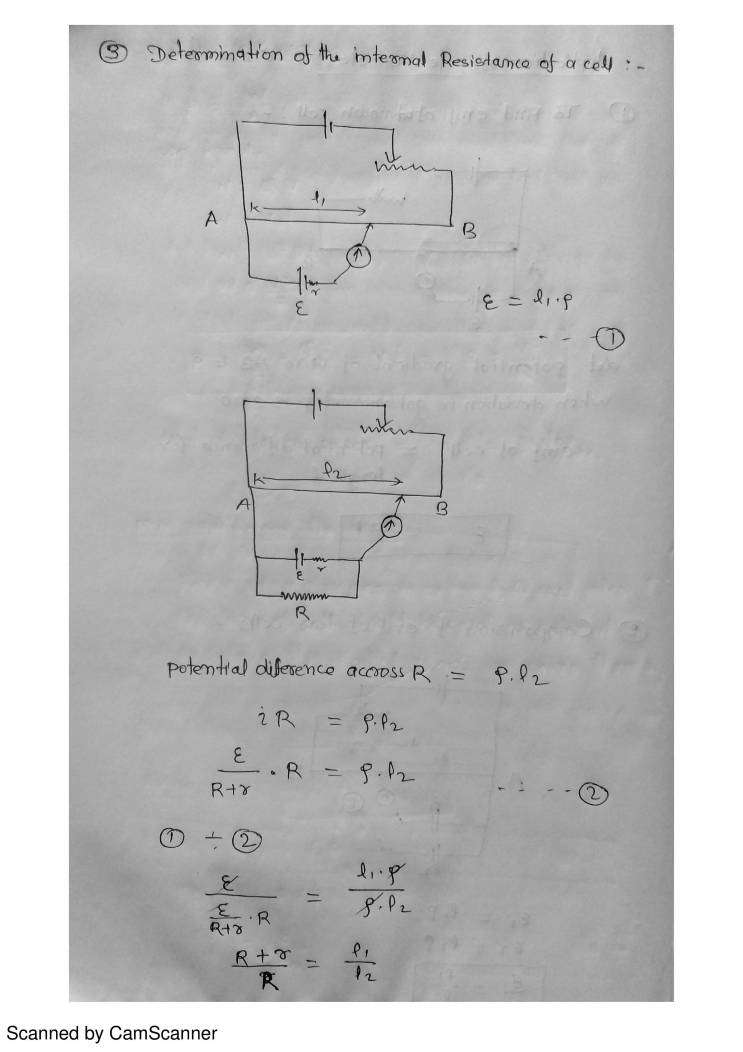 ③ Determination of the internal Resistance of a cell :-
l₁
A
B
r
ε
ε = l₁.ρ
- - - ①
l₂
A
B
ε r
R
potential diference accross R = ρ.l₂
iR = ρ.l₂
ε/(R+r) . R = ρ.l₂
- - - - ②
① ÷ ②
ε/(ε/(R+r) . R) = l₁.ρ/ρ.l₂
(R+r)/R = l₁/l₂
Scanned by CamScanner